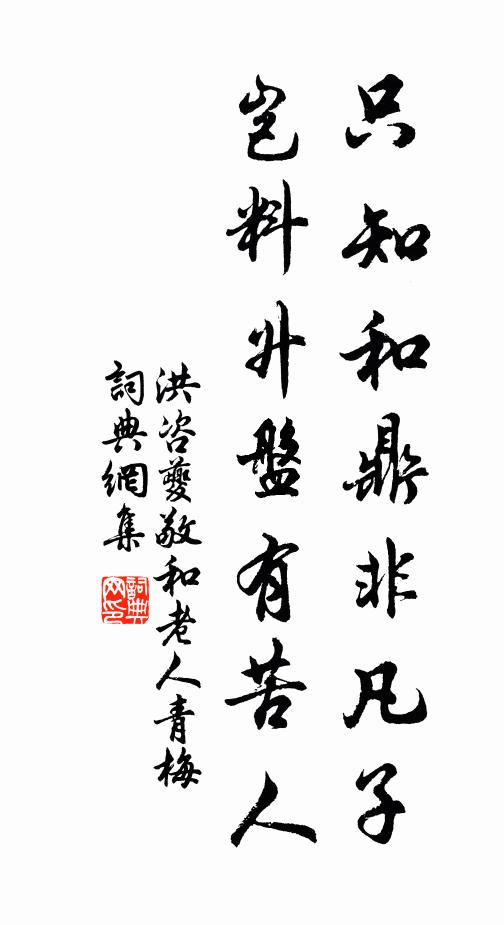 只知和鼎非凡子
豈料升盤有苦人
洪咨夔敬和老人青梅
詞典網集
詞典網印